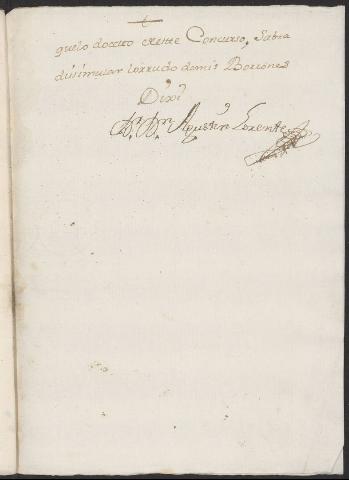 que lo docto deste Concurso, Sabra
disimular lo rrudo de mis Borrones
Dixi
Dr. Dn. Agustin Lorente